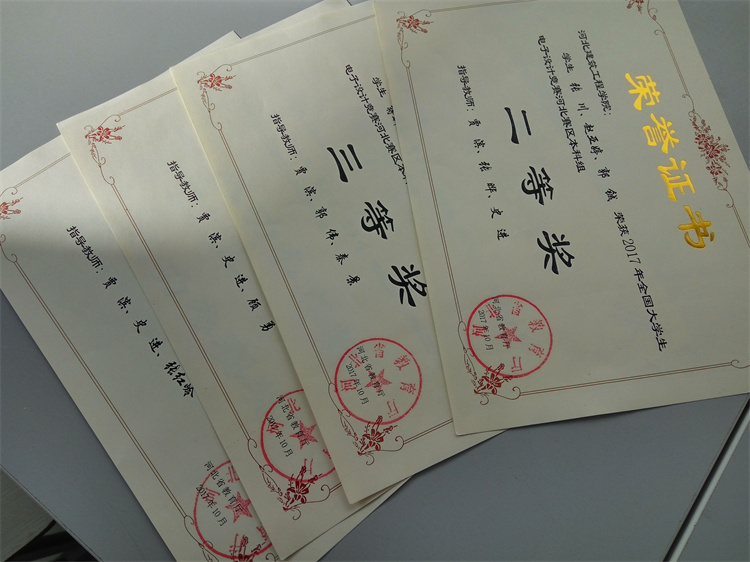 荣誉证书
河北建筑工程学院：
学生 张川、赵亚婷、郭铖 荣获2017年全国大学生
电子设计竞赛河北赛区本科组
二等奖
指导教师：贾滨、张晖、史进
河北省教育厅
2017年10月
学生
电子设计竞赛河北赛区本科
三等奖
指导教师：贾滨、郭伟、秦景
河北省教育厅
2017年10月
指导教师：贾滨、史进、顾勇
河北省教育厅
2017年10月
指导教师：贾滨、史进、张红岭
河北省教育厅
2017年10月